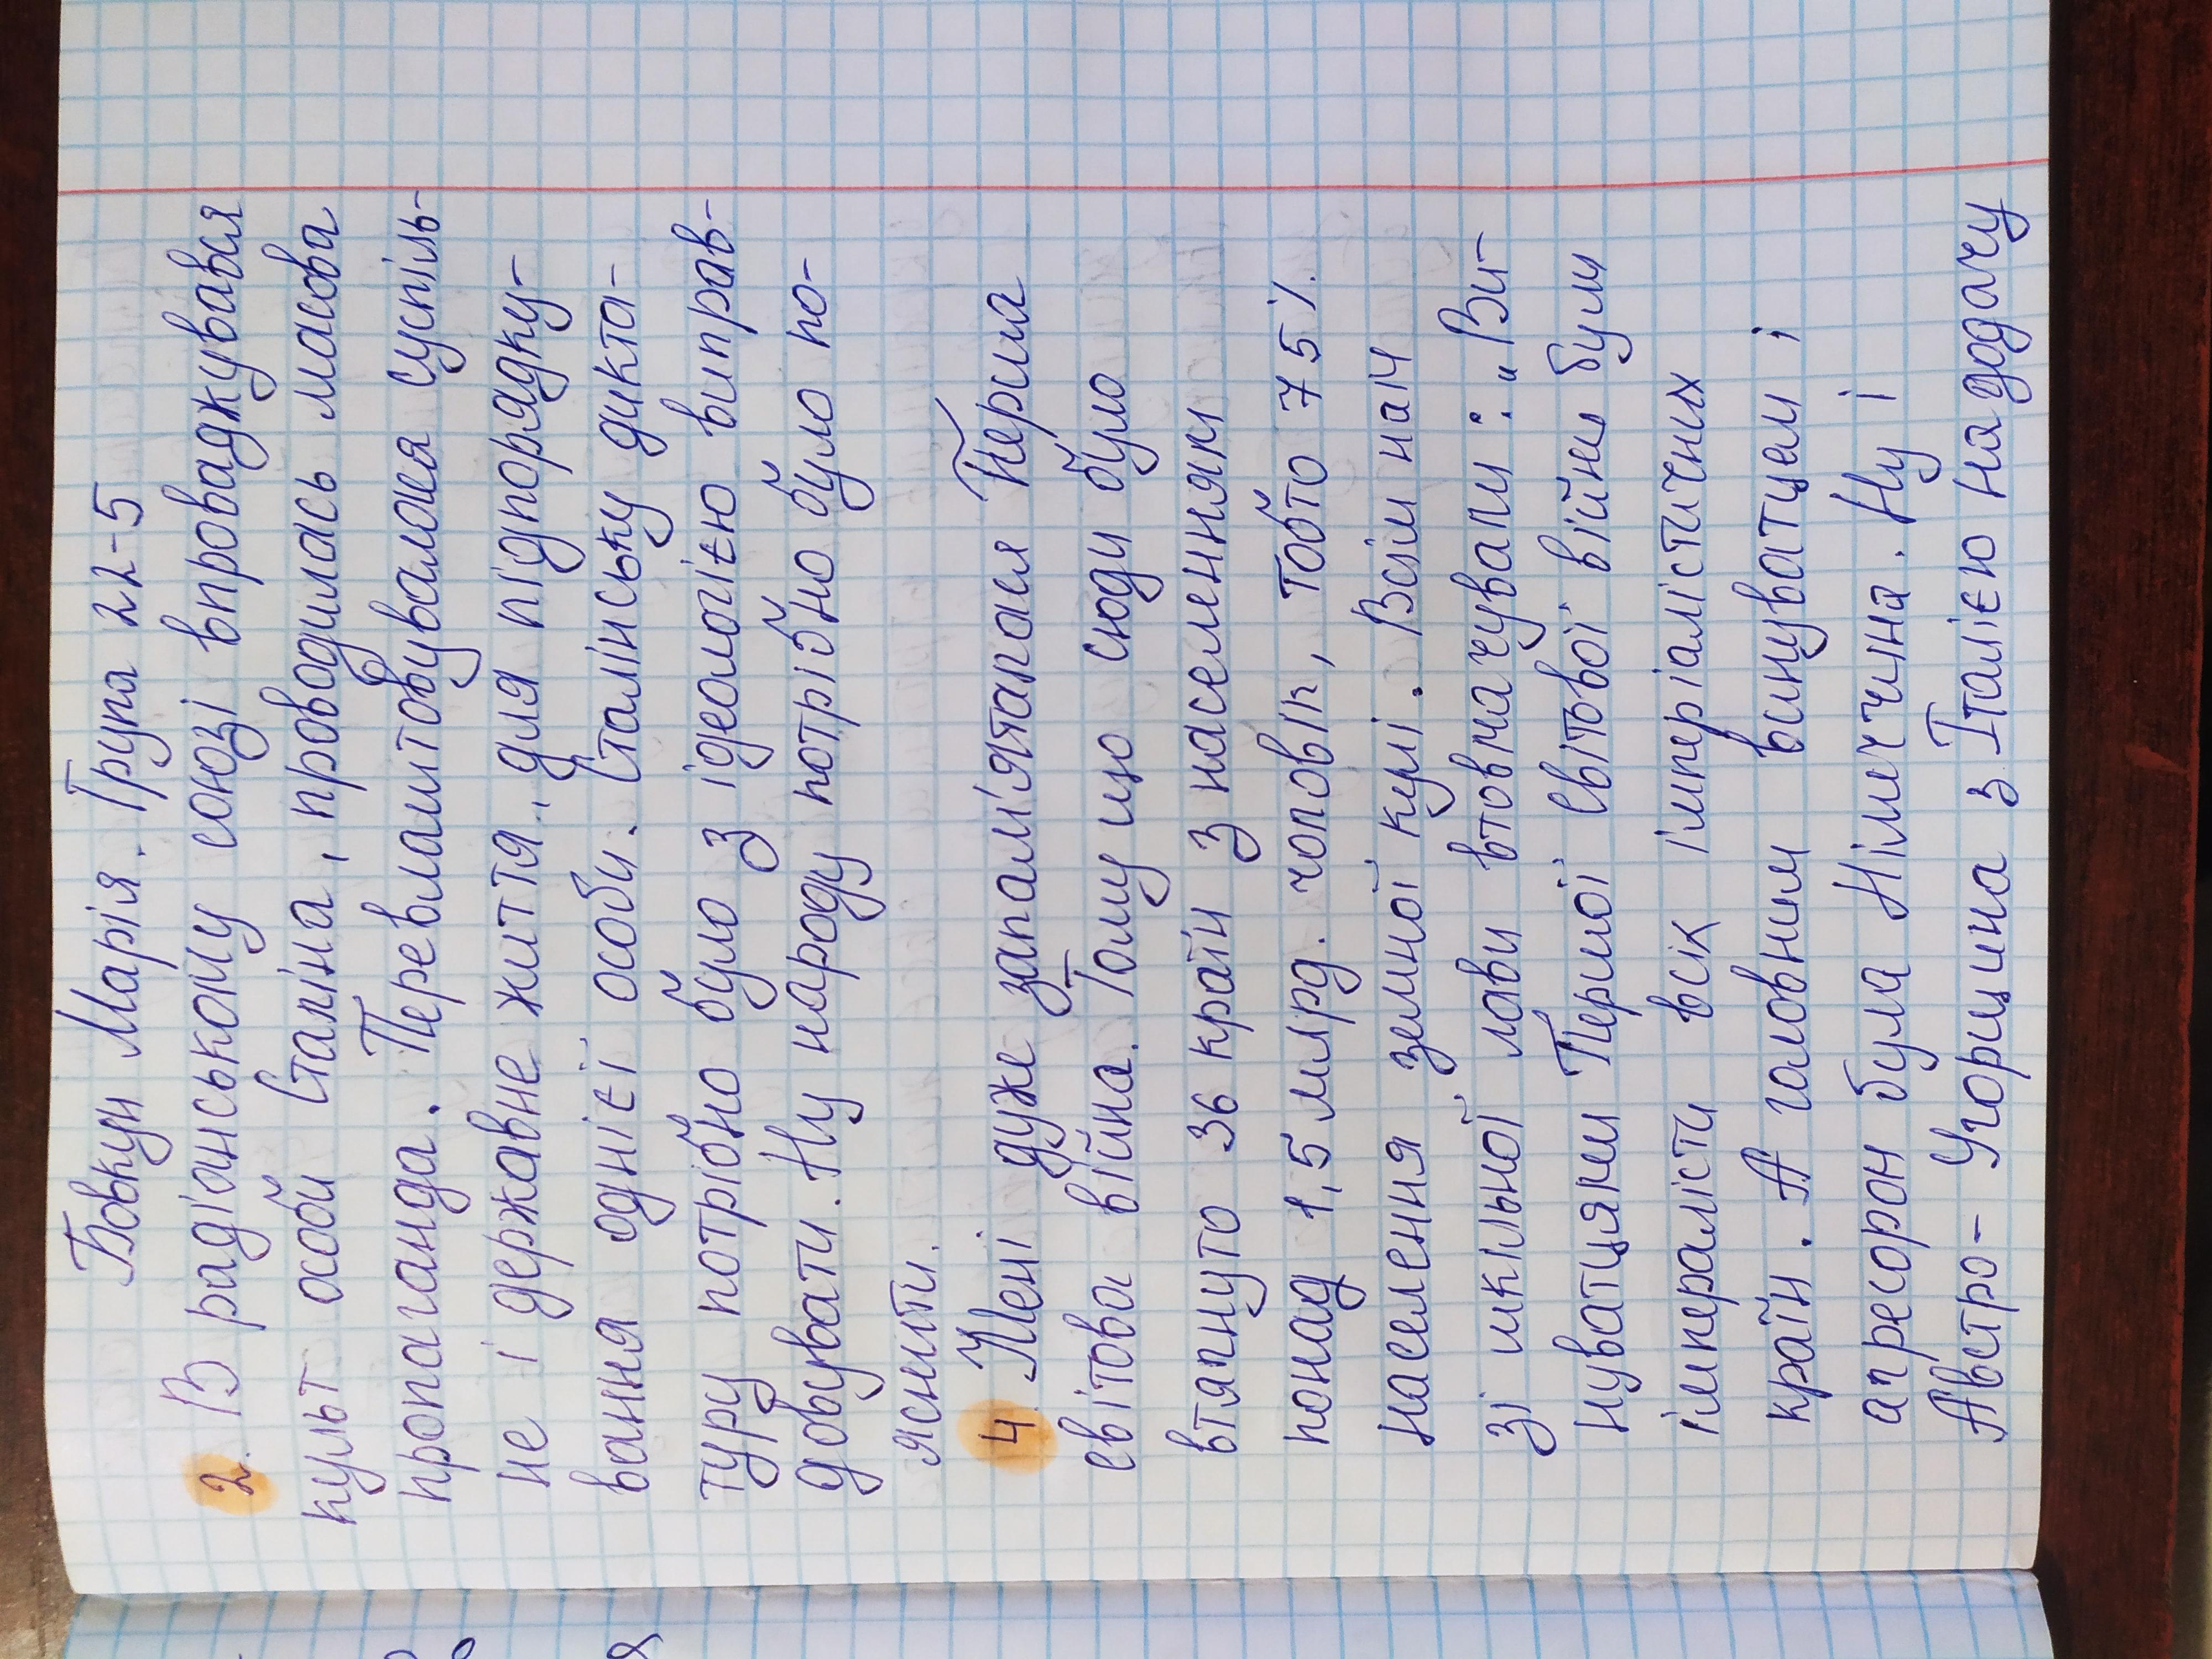 Бовкун Марія. Група 22-5
2. В радіанському союзі впроваджувався
культ особи Сталіна, проводилась масова
пропаганда. Перевлаштовувалося суспіль-
не і державне життя, для підпорядку-
вання однієї особи. Сталінську дикта-
туру потрібно було з ідеологією виправ-
довувати. Ну народу потрібно було по-
яснити.
4. Мені дуже запам'яталася Перша
світова війна. Тому що сюди було
втягнуто 36 країн з населенням
понад 1,5 млрд. чоловік, тобто 75%
населення земної кулі. Всім нам
зі шкільної лави втовмачували: „Ви-
нуватцями Першої світової війни були
імпералісти всіх імперіалістичних
країн. А головним винуватцем і
агресорон була Німеччина. Ну і
Австро-Угорщина з Італією на додачу